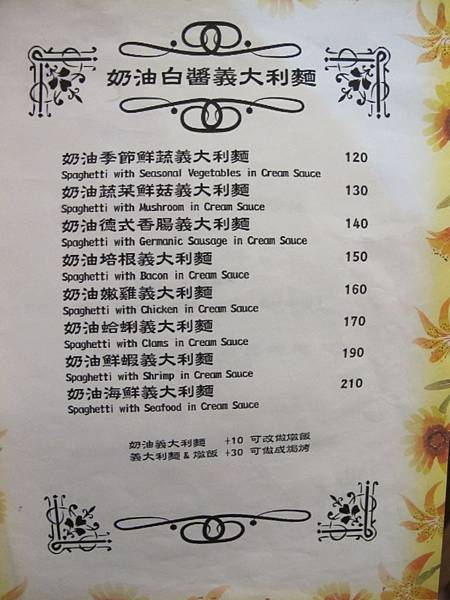 奶油白醬義大利麵
奶油季節鮮蔬義大利麵 120
Spaghetti with Seasonal Vegetables in Cream Sauce
奶油蔬菜鮮菇義大利麵 130
Spaghetti with Mushroom in Cream Sauce
奶油德式香腸義大利麵 140
Spaghetti with Germanic Sausage in Cream Sauce
奶油培根義大利麵 150
Spaghetti with Bacon in Cream Sauce
奶油嫩雞義大利麵 160
Spaghetti with Chicken in Cream Sauce
奶油蛤蜊義大利麵 170
Spaghetti with Clams in Cream Sauce
奶油鮮蝦義大利麵 190
Spaghetti with Shrimp in Cream Sauce
奶油海鮮義大利麵 210
Spaghetti with Seafood in Cream Sauce
奶油義大利麵 +10 可改做燉飯
義大利麵 & 燉飯 +30 可做成焗烤